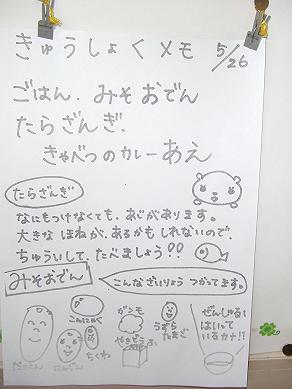 きゅうしょくメモ 5/26
ごはん. みそおでん
たらざんぎ.
きゃべつのカレーあえ
たらざんぎ
なにもつけなくても、あじがあります。
大きなほねが、あるかもしれないので、
ちゅういして、たべましょう!!
みそおでん
こんなざいりょうつかってます。
こんにゃく
ちくわ
にんじん
だいこん
ガンモ
やきどうふ
うずら
たまご
ぜんしゅるい
はいって
いるカナ!!